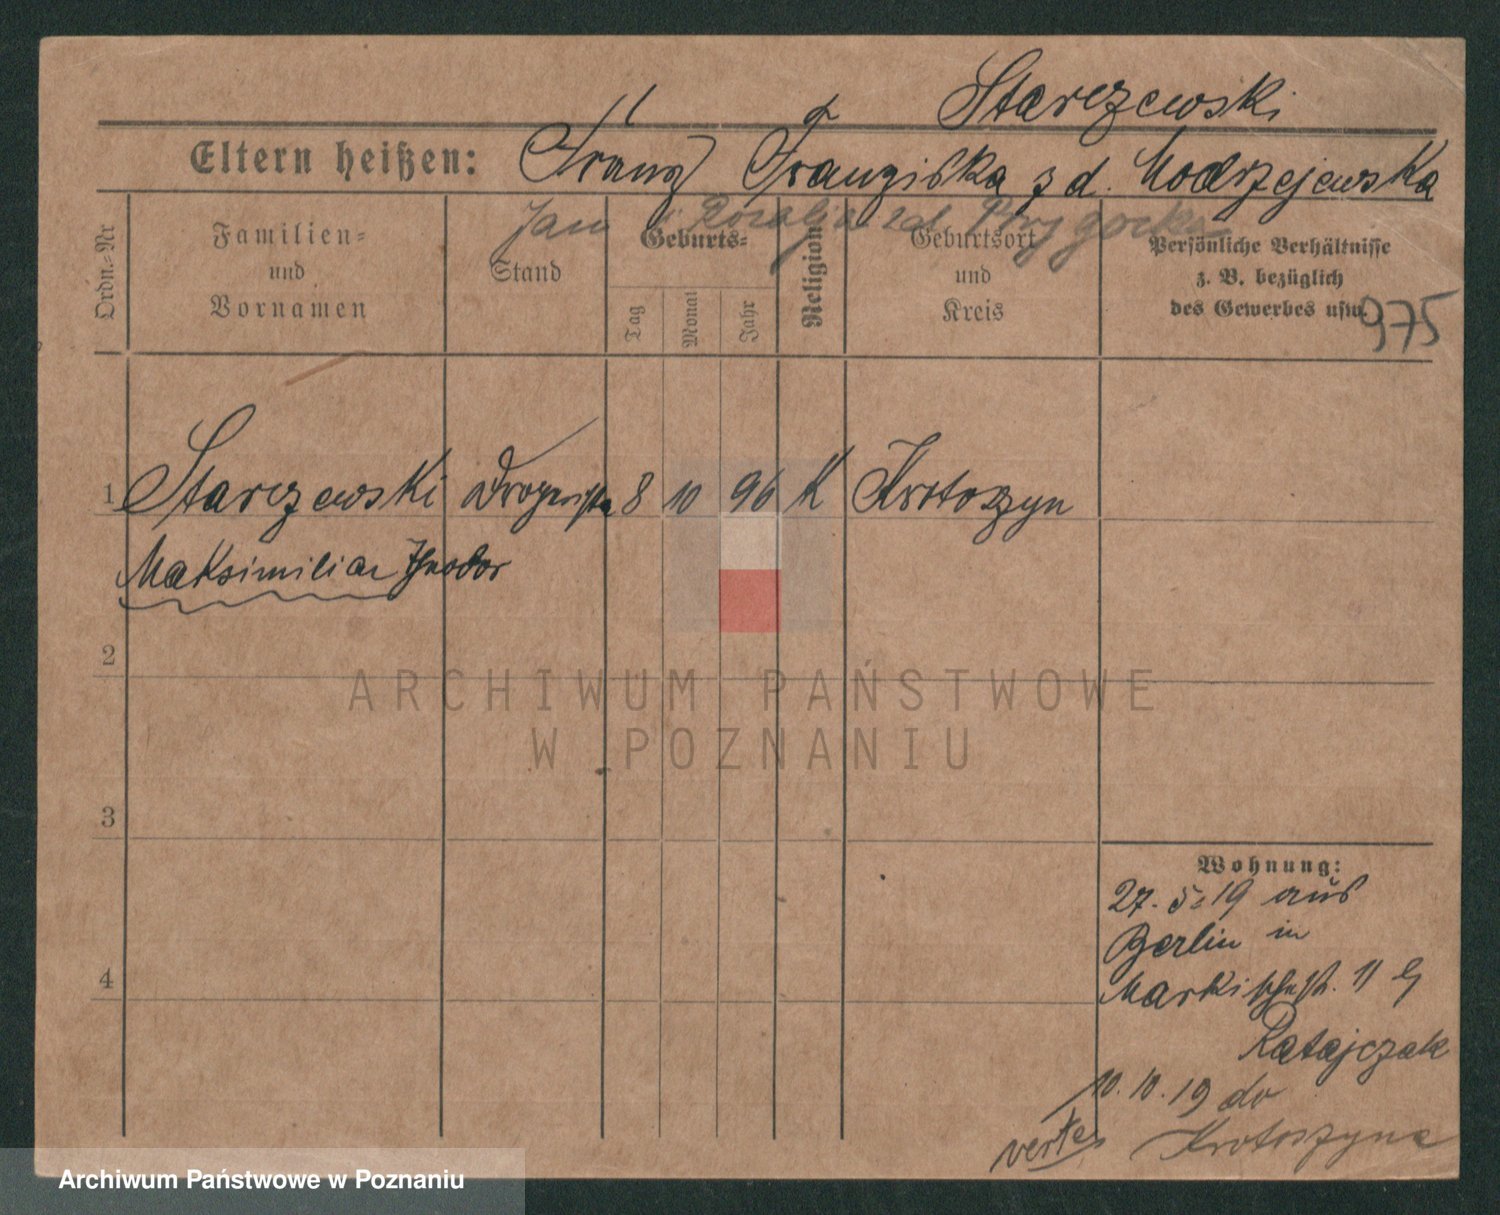 Starczewski
Eltern heißen: Franz Franziska z d. Modrzejewska
Jan i Rozalja zd.
Ordn.-Nr
Familien-
und
Vornamen
Stand
Geburts-
Tag
Monat
Jahr
Religion
Geburtsort
und
Kreis
Persönliche Verhältnisse
z. B. bezüglich
des Gewerbes usw.
975
1 Starczewski Drogerista 8 10 96 K Krotoszyn
Maksimilian Theodor
2
ARCHIWUM PAŃSTWOWE
W POZNANIU
3
Wohnung:
27. 5. 19 aus
Berlin in
4
Markischestr. 11
Ratajczak
10. 10. 19 do
Krotoszyna
verte
Archiwum Państwowe w Poznaniu